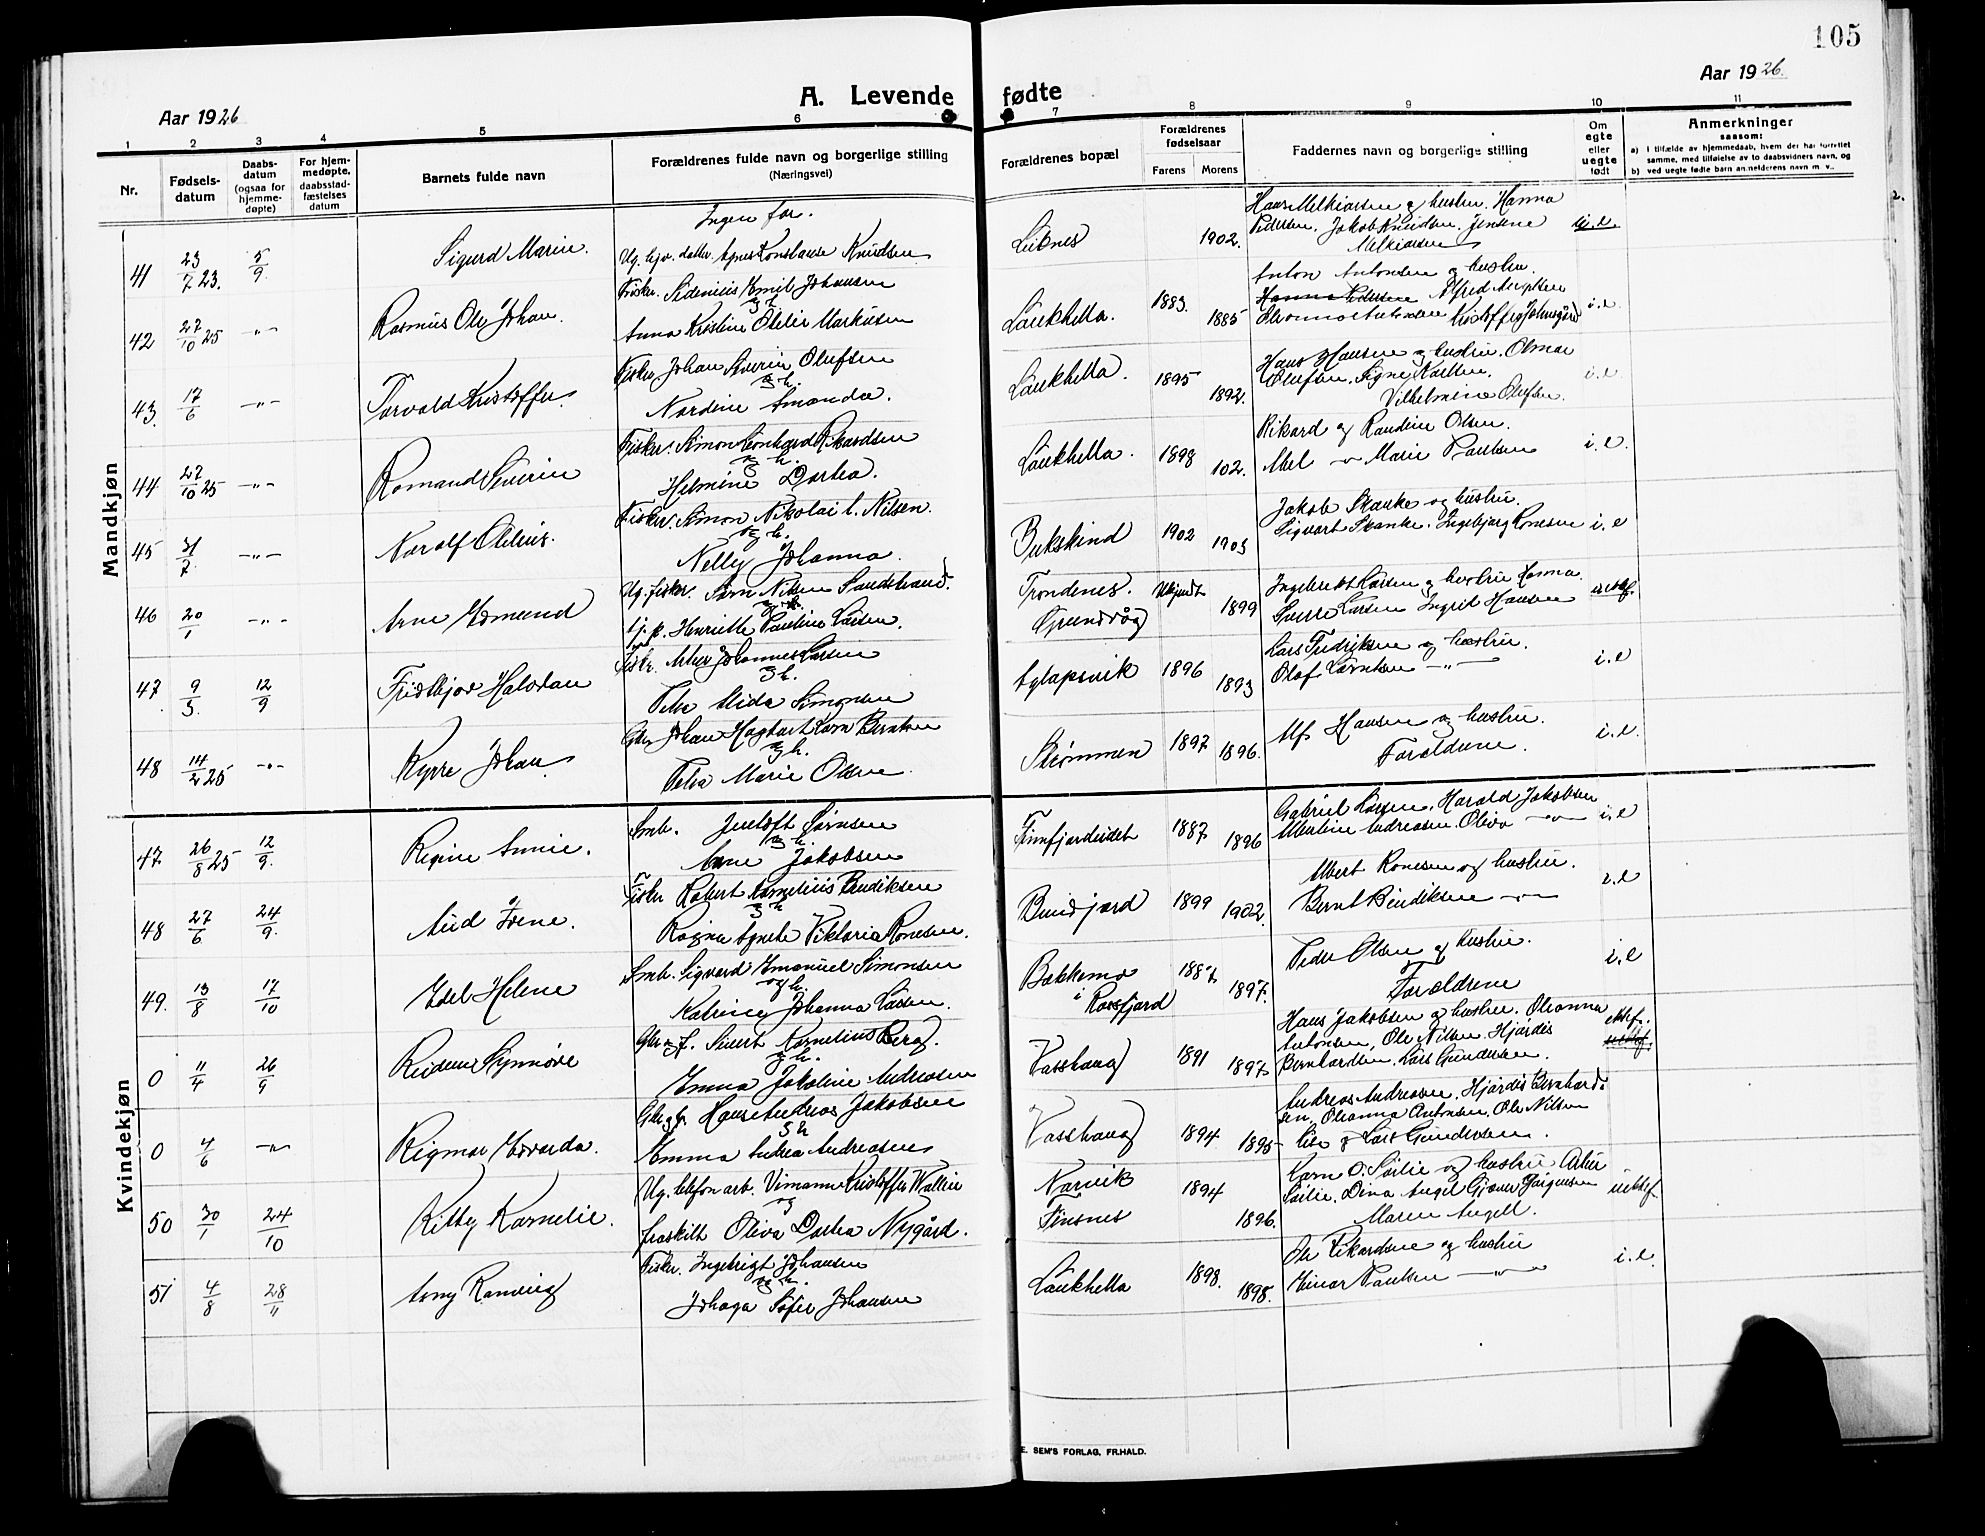 105
Aar 1926
A. Levende fødte
Aar 1926.
1 2 3 4 5 6 7 8 9 10 11
Nr.
Fødsels-
datum
Daabs-
datum
(ogsaa for
hjemme-
døpte)
For hjem-
medøpte,
daabsstad-
fæstelses
datum
Barnets fulde navn
Forældrenes fulde navn og borgerlige stilling
(Næringsvei)
Forældrenes bopæl
Forældrenes
fødselsaar
Farens Morens
Faddernes navn og borgerlige stilling
Om
egte
eller
uegte
født
Anmerkninger
saasom:
a) i tilfælde av hjemmedaab, hvem der har forrettet
samme, med tilføielse av to daabsvidners navn, og
b) ved uegte fødte barn anmelderens navn m. v.
Mandkjøn
Ingen far.
41 23/7 23. 5/9 Sigurd Marin. Ug. Agnes Konstanse Knudsen 1902. u.e.
Hans Melkiorsen og hustru. Hanna
Pedersen, Jakob Knudsen, Jensine
Melkiorsen
42 27/10 25 -"- Rasmus Ole Johan. Fisker. Sidenius Emil Johansen
og h.
Anna Kristine Otelie Markusen
Laukhella. 1883. 1885 i.e.
Anton Antonsen og hustru.
43. 17/6 -"- Torvald Kristoffer. Fisker Johan Severin Olufsen
og h.
Nordine Amanda.
Laukhella. 1895 1892. i.e
Hans Hansen og hustru. Olmar
Olufsen. Signe
Vilhelmine Olufsen.
44 27/10 25 -"- Romand Severin Fisker. Simon Leonhard Rikardsen
og h.
Helmine Dortea.
Laukhella. 1898 102. i.e.
Rikard og Randine Olsen.
Marie Paulsen
45 31/7 -"- Narolf Otelius. Fisker. Simon Nikolai l. Nilsen.
og h.
Nelly Johanna.
Bukskind 1902 1903 i.e
Jakob Skanke og hustru.
Sigvart Skanke. Ingebjørg Ronesen
46 20/1 -"- Arne Edmund Ug. fisker. Søren Nilsen Sandstrand.
tj. p. Henriette Pauline Larsen.
Trondenes. Ukjendt 1899
Grundvåg
Ingebrekt Larsen og hustru Hanna
Sverre Larsen Ingrid Hansen
47. 9/3. 12/9 Fridtjov Halvdan Johannes Larsen
og h.
Petra Alida Simonsen
Aglapsvik 1896 1893 i.e
Lars Fredriksen og hustru.
Olaf Larntsen -"-
48 14/2 25 -"- Kyrre Johan Gbr Johan Hagbart Karn Berntsen
og h.
Petra Marie Olsen.
Strømmen 1897 1896. i.e.
Alf Hansen og hustru.
Forældrene.
Kvindekjøn
47. 26/8 25 12/9. Regine Annie. Smb. Jentoft Sørensen
og h.
Arne Jakobsen
Finfjordeidet 1887 1896 i.e
Gabriel Larsen, Harald Jakobsen
Albertine Andreasen, Oliva -"-
48 27/6 24/9. Aud Irene. Fisker Robert Kornelius Bendiksen
og h
Ragna Agnete Viktoria Ronesen.
Bundfjord 1899 1902. i.e
Albert Ronesen og hustru.
Bernt Bendiksen -"-
49. 13/8 17/10 Edel Helene Smb. Sigvard Emanuel Simonsen
og h.
Katrine Johanna Larsen.
Bakkemo
i Rossfjord 1887 1897. i.e
Peder Olsen og hustru.
Forældrene
0 11/4 26/9 Reidun Synnøve Gbr og f. Sivert Kornelius Berg.
og h.
Emma Jakoline Andreasen
Vasshaug 1891 1897 ektef.
Hans Jakobsen og hustru. Oleanna
Antonsen, Ole Nilsen, Hjørdis
Bernhardsen. Lars Gundersen.
0 4/6 -"- Rigmor Edvarda. Gbr og f. Hans Andreas Jakobsen
og h
Emma Andrea Andreasen
Vasshaug 1894 1895
Andreas Andreasen, Hjørdis Bernhard-
sen, Oleanna Antonsen, Ole Nilsen
Lars Gundersen.
50 30/1 24/10 Kitty Kornelie. Ug. telefon arb. Vimann Kristoffer Wallin
og
fraskilt Oliva Dortea Nygård.
Narvik 1894
Finsnes 1896. uektef
Karn O. Sørlie og hustru
Sørlie. Dina Angel Gjæver Jørgensen
Maren Angell.
51 4/8 28/11 Amy Ranveig Fisker. Ingebrigt Johansen
og h.
Johaga Sofie Johansen
Laukhella 1898. 1898. i.e.
Ole Rikardsen og hustru
Einar Paulsen -"-
E. SEM'S FORLAG, FR.HALD.